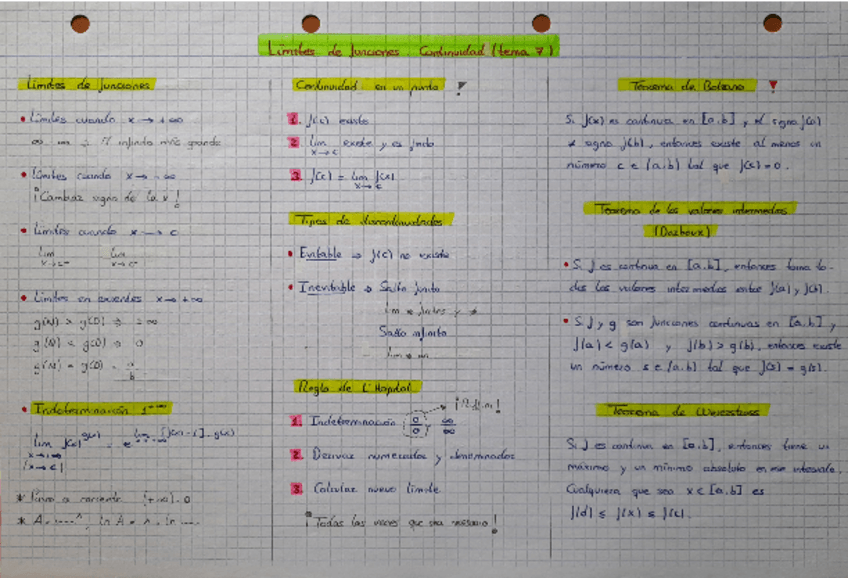 Límites de funciones Continuidad (tema 7)
Límites de funciones
• Límites cuando x → +∞
∞ - ∞ → El infinito más grande
• Límites cuando x → -∞
¡Cambiar signo de la x!
• Límites cuando x → c
lim x→c⁻ lim x→c⁺
• Límites en cocientes x → +∞
g(N) > g(D) → ±∞
g(N) < g(D) → 0
g(N) = g(D) → a/b
• Indeterminación 1^+∞
lim f(x)^g(x) = e^lim [f(x)-1]·g(x)
x→+∞
(x→c)
* Paso a cociente (+∞)·0
Continuidad en un punto
1. f(c) existe
2. lim x→c existe y es finito
3. f(c) = lim x→c f(x)
Tipos de discontinuidades
• Evitable → f(c) no existe
• Inevitable → Salto finito
lim = finitos y ≠
Salto infinito
lim = ∞
Regla de L'Hopital
1. Indeterminación 0/0 ∞/∞
2. Derivar numerador y denominador
3. Calcular nuevo límite
¡Todas las veces que sea necesario!
Teorema de Bolzano
Si f(x) es continua en [a,b], y el signo f(a)
≠ signo f(b), entonces existe al menos un
número c ∈ (a,b) tal que f(c)=0.
Teorema de los valores intermedios
(Darboux)
• Si f es continua en [a,b], entonces toma to-
dos los valores intermedios entre f(a) y f(b).
• Si f y g son funciones continuas en [a,b] y
f(a) < g(a) y f(b) > g(b), entonces existe
un número s ∈ (a,b) tal que f(s) = g(s).
Teorema de Weierstrass
Si f es continua en [a,b], entonces tiene un
máximo y un mínimo absoluto en ese intervalo.
Cualquiera que sea x ∈ [a,b] es
f(d) ≤ f(x) ≤ f(c).